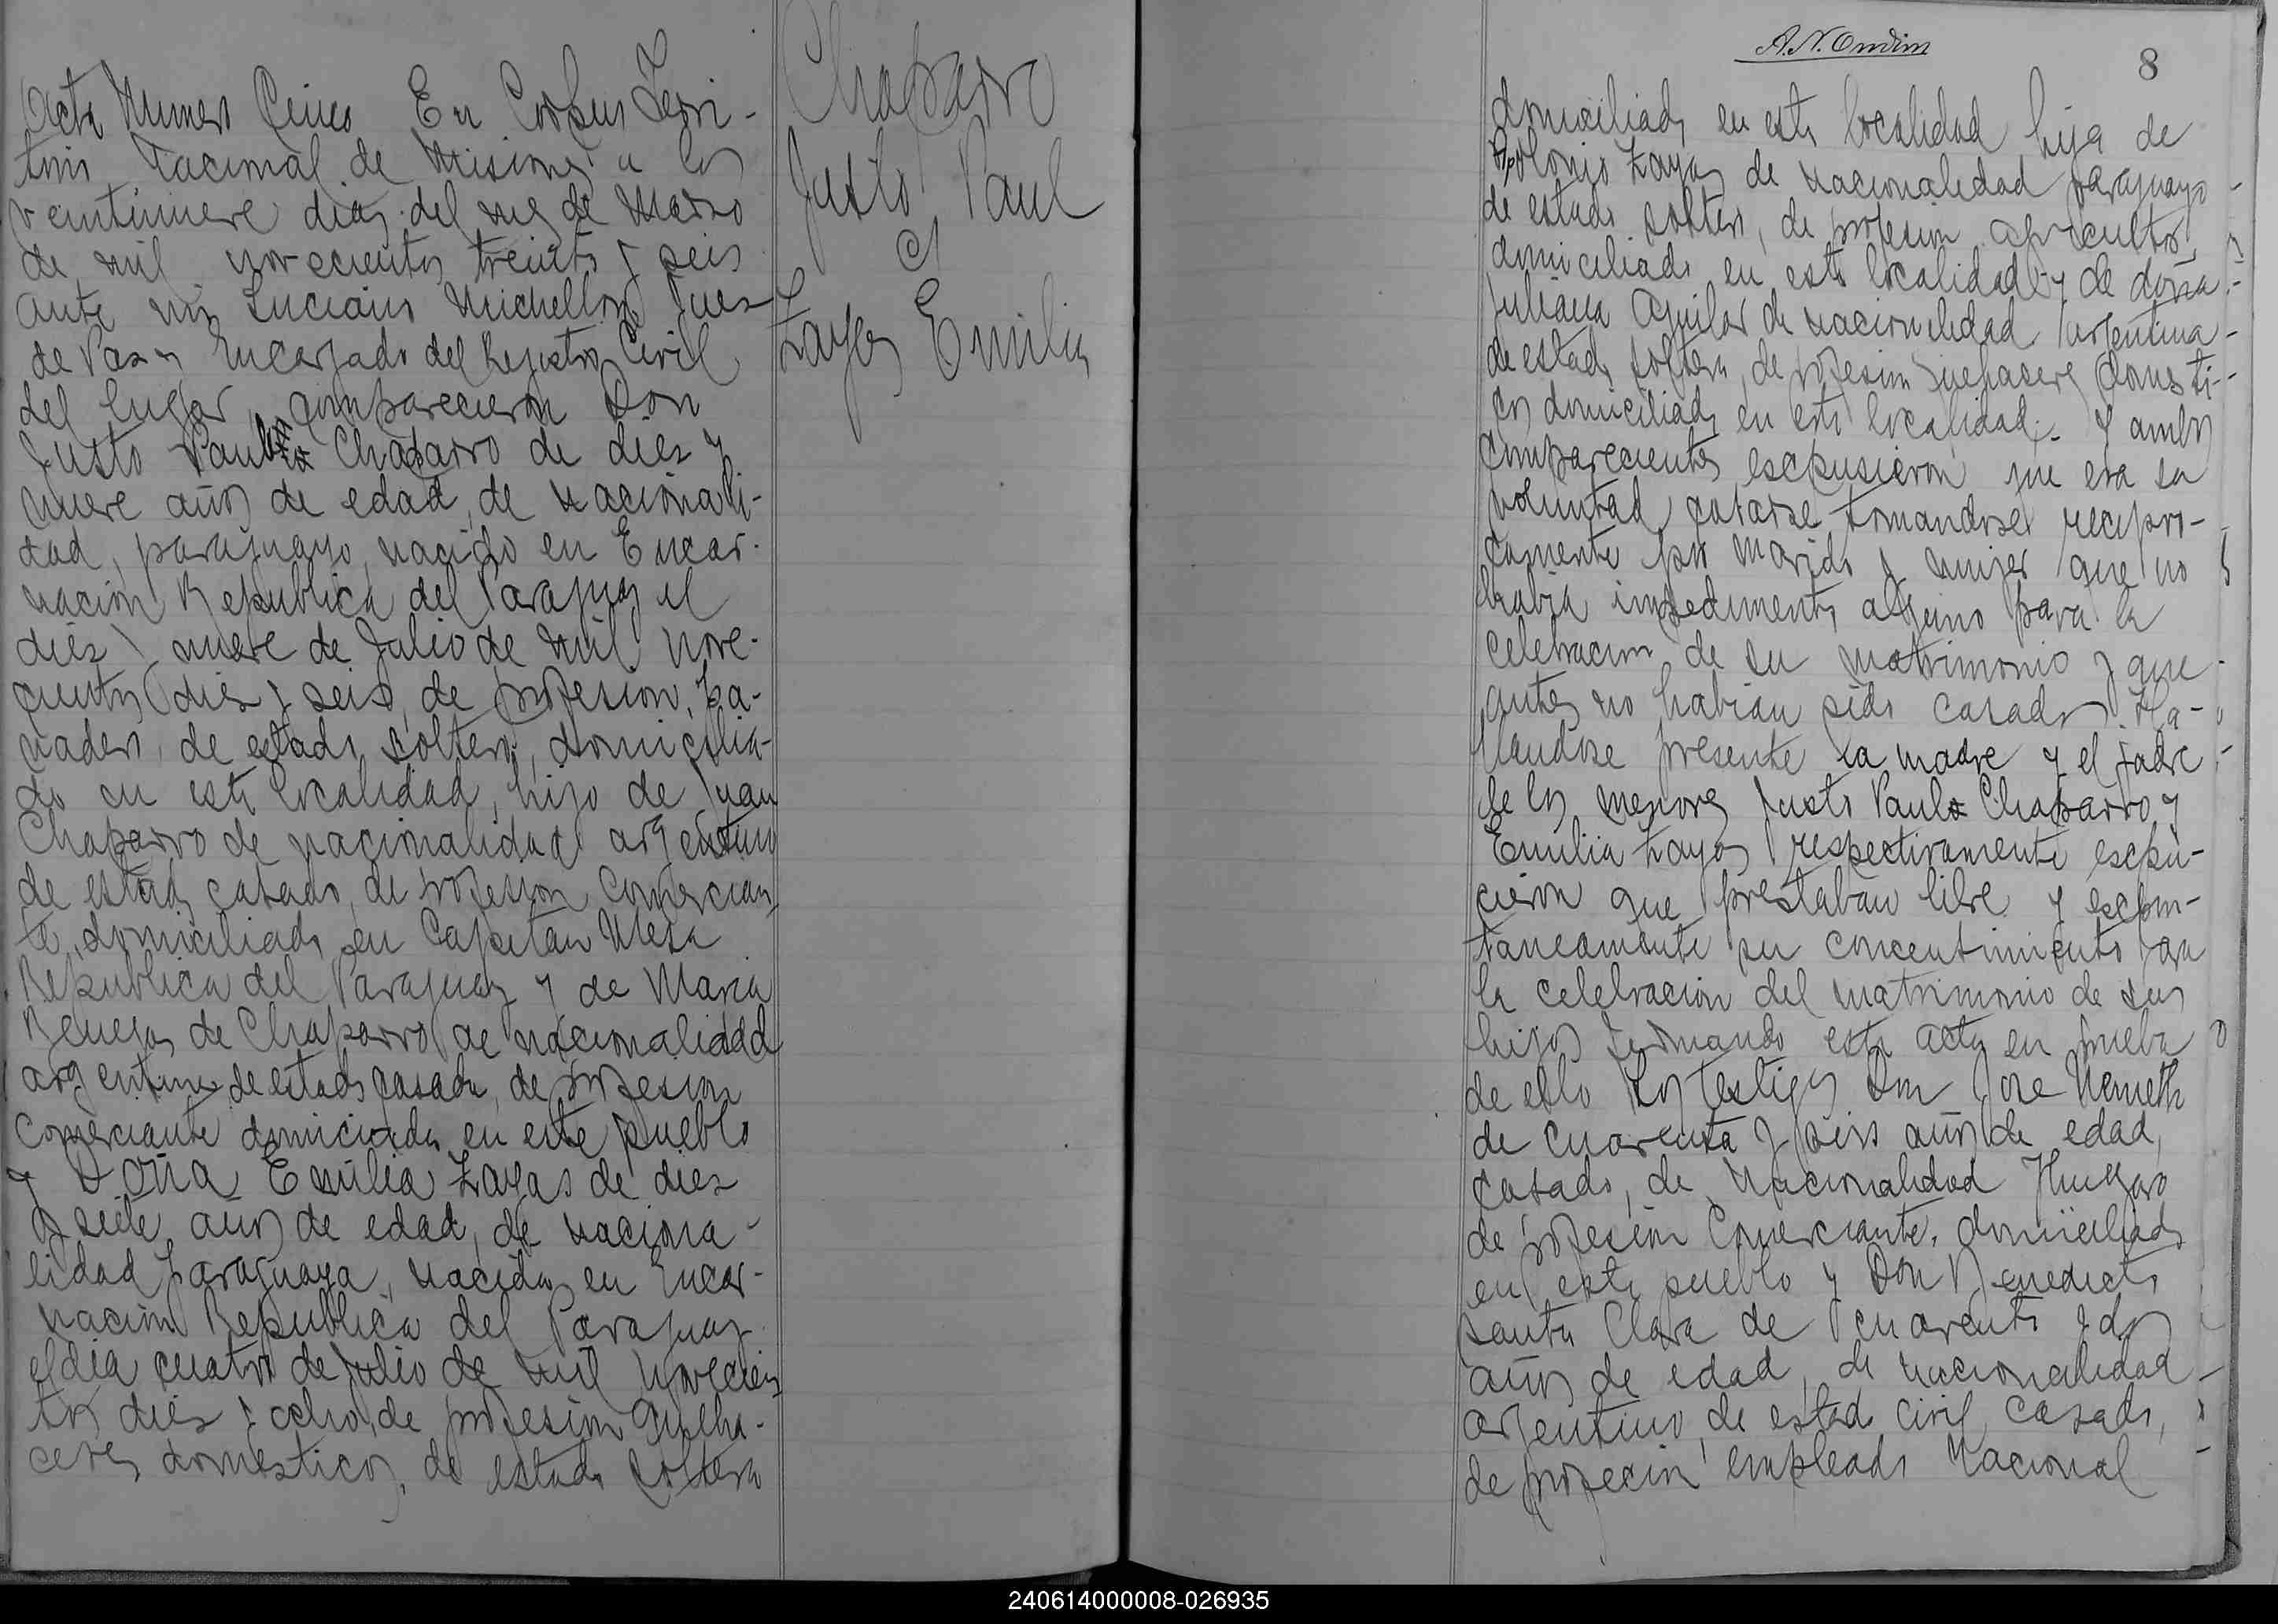 Acta Numero Cinco En Corpus Terri-
torio Nacional de Misiones a los
veintinueve dias del mes de Marzo
de mil novecientos treinta y seis
ante mi Luciano Michellon Juez
de Paz y Encargado del Registro Civil
del lugar, comparecieron Don
Justo Paul Chaparro de diez y
nueve años de edad, de nacionali-
dad, paraguayo, nacido en Encar-
nación Republica del Paraguay el
diez y nueve de Julio de mil nove-
cientos diez y seis, de profesion, pa-
nadero, de estado soltero, domicilia-
do en esta localidad, hijo de Juan
Chaparro de nacionalidad argentino
de estado casado, de profesion comercian
te, domiciliado en Capitan Meza
Republica del Paraguay y de Maria
Benega de Chaparro de nacionalidad
argentina de estado casada, de profesion
comerciante domiciliada en este pueblo
y Doña Emilia Zayas de diez
y siete años de edad, de naciona-
lidad paraguaya, nacida en Encar-
nacion Republica del Paraguay
el dia cuatro de Julio de mil novecien
tos diez y ocho, de profesion queha-
ceres domesticos, de estado soltera
Chaparro
Justo Paul
c/
Zayas Emilia
8
domiciliada en esta localidad hija de
Apolonio Zayas de nacionalidad paraguayo
de estado soltero, de profesion agricultor,
domiciliado en esta localidad y de doña
Juliana Aguilar de nacionalidad argentina
de estado soltera, de profesion quehaseres domesti-
cos domiciliada en esta localidad. Y ambos
comparecientes escpusieron que era su
voluntad casarse tomandose recipro-
camente por marido y mujer que no
habia impedimento alguno para la
celebracion de su matrimonio y que
antes no habian sido casados. Ha-
llandose presente la madre y el padre
de los menores Justo Paul Chaparro y
Emilia Zayas respectivamente escpu-
cieron que prestaban libre y escpon-
taneamente su concentimiento para
la celebracion del matrimonio de sus
hijos firmando esta acta en prueba
de ello los testigos Don Jose Nemeth
de cuarenta y seis años de edad,
casado, de nacionalidad Hungaro
de profesion Comerciante, domiciliado
en este pueblo y Don Benedicto
Santa Clara de cuarenta y dos
años de edad, de nacionalidad
argentino, de estado civil casado,
de profecion empleado Nacional
240614000008-026935